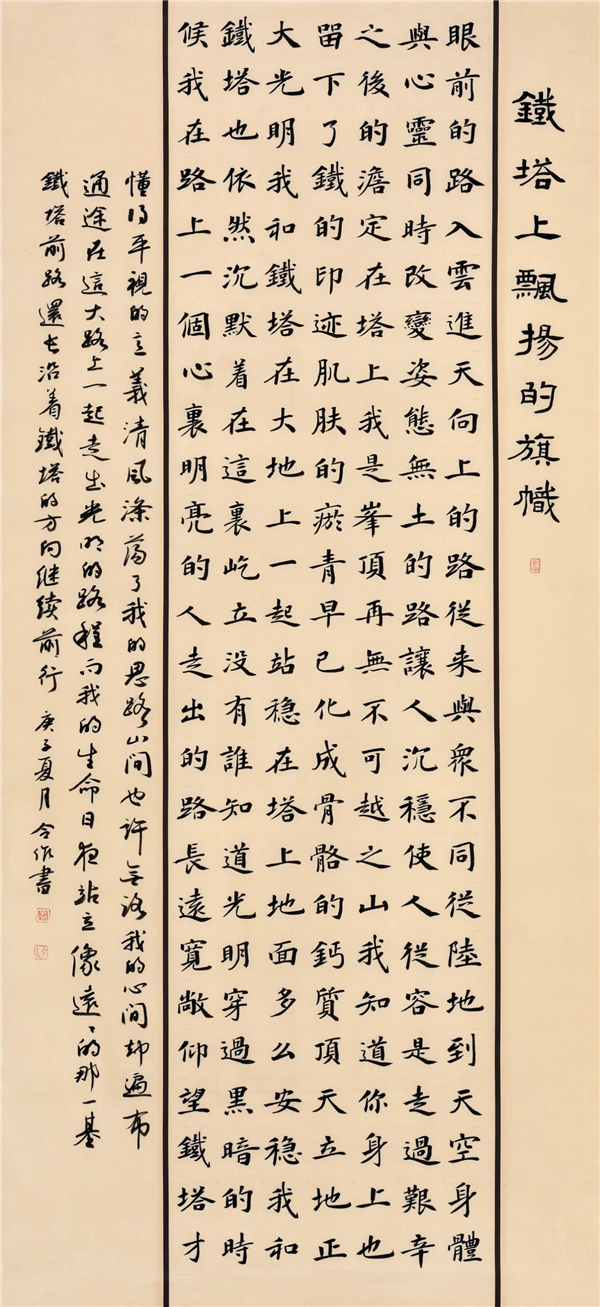 鐵塔上飄揚的旗幟
眼前的路入雲進天向上的路從来與衆不同從陸地到天空身體
與心靈同時改變姿態無土的路讓人沉穩使人從容是走過艱辛
之後的澹定在塔上我是峯頂再無不可越之山我知道你身上也
留下了鐵的印迹肌肤的瘀青早已化成骨骼的鈣質頂天立地正
大光明我和鐵塔在大地上一起站稳在塔上地面多么安稳我和
鐵塔也依然沉默着在這裏屹立没有誰知道光明穿過黑暗的時
候我在路上一個心裏明亮的人走出的路長遠寬敞仰望鐵塔才
懂得平視的意義清風滌蕩了我的思路山间也許無路我的心间却遍布
通途在這大路上一起走出光明的路程而我的生命日夜站立像遠〻的那一基
鐵塔前路還长沿着鐵塔的方向继续前行 庚子夏月 令作書